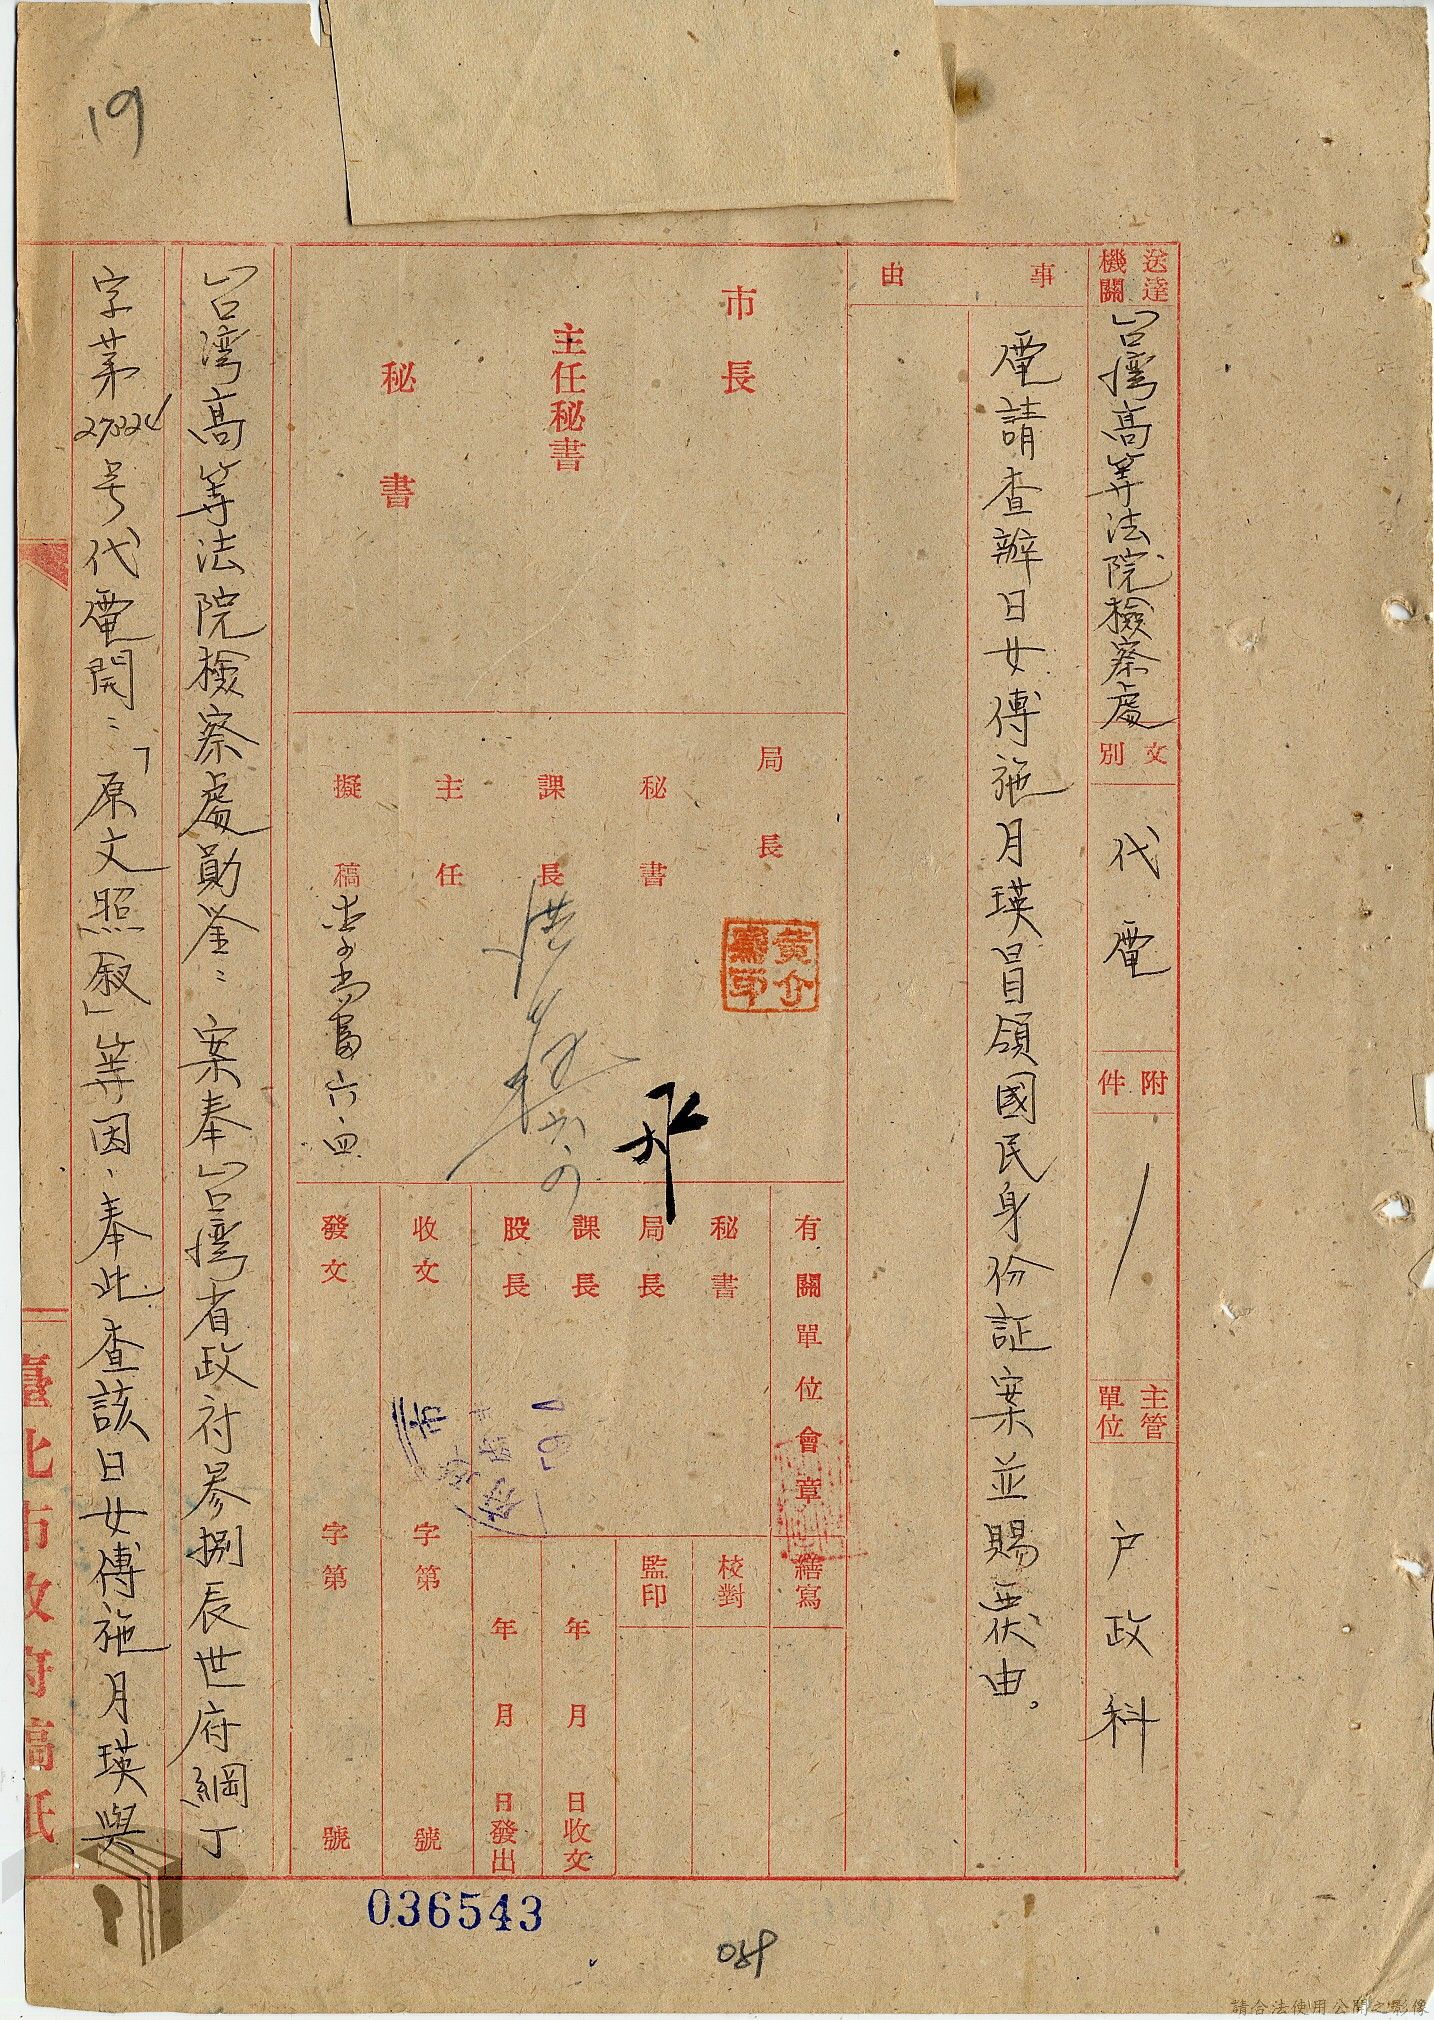 19
送達機關
台灣高等法院檢察處
文別
代電
附件
主管單位
户政科
事由
電請查辦日女傅施月瑛冒領國民身份証案並賜覆由。
市長
主任秘書
秘書
局長
秘書
課長
主任
擬稿
六、四
有關單位會章
秘書
局長
課長
股長
繕寫
校對
監印
年月日收文
年月日發出
收文字第號
發文字第號
台湾高等法院檢察處勛鉴：案奉台灣省政府參捌辰世府綱丁
字第27224号代電開：「原文照叙」等因、奉此查該日女傅施月瑛與
臺北市政府稿紙
036543
089
請合法使用公開之影像